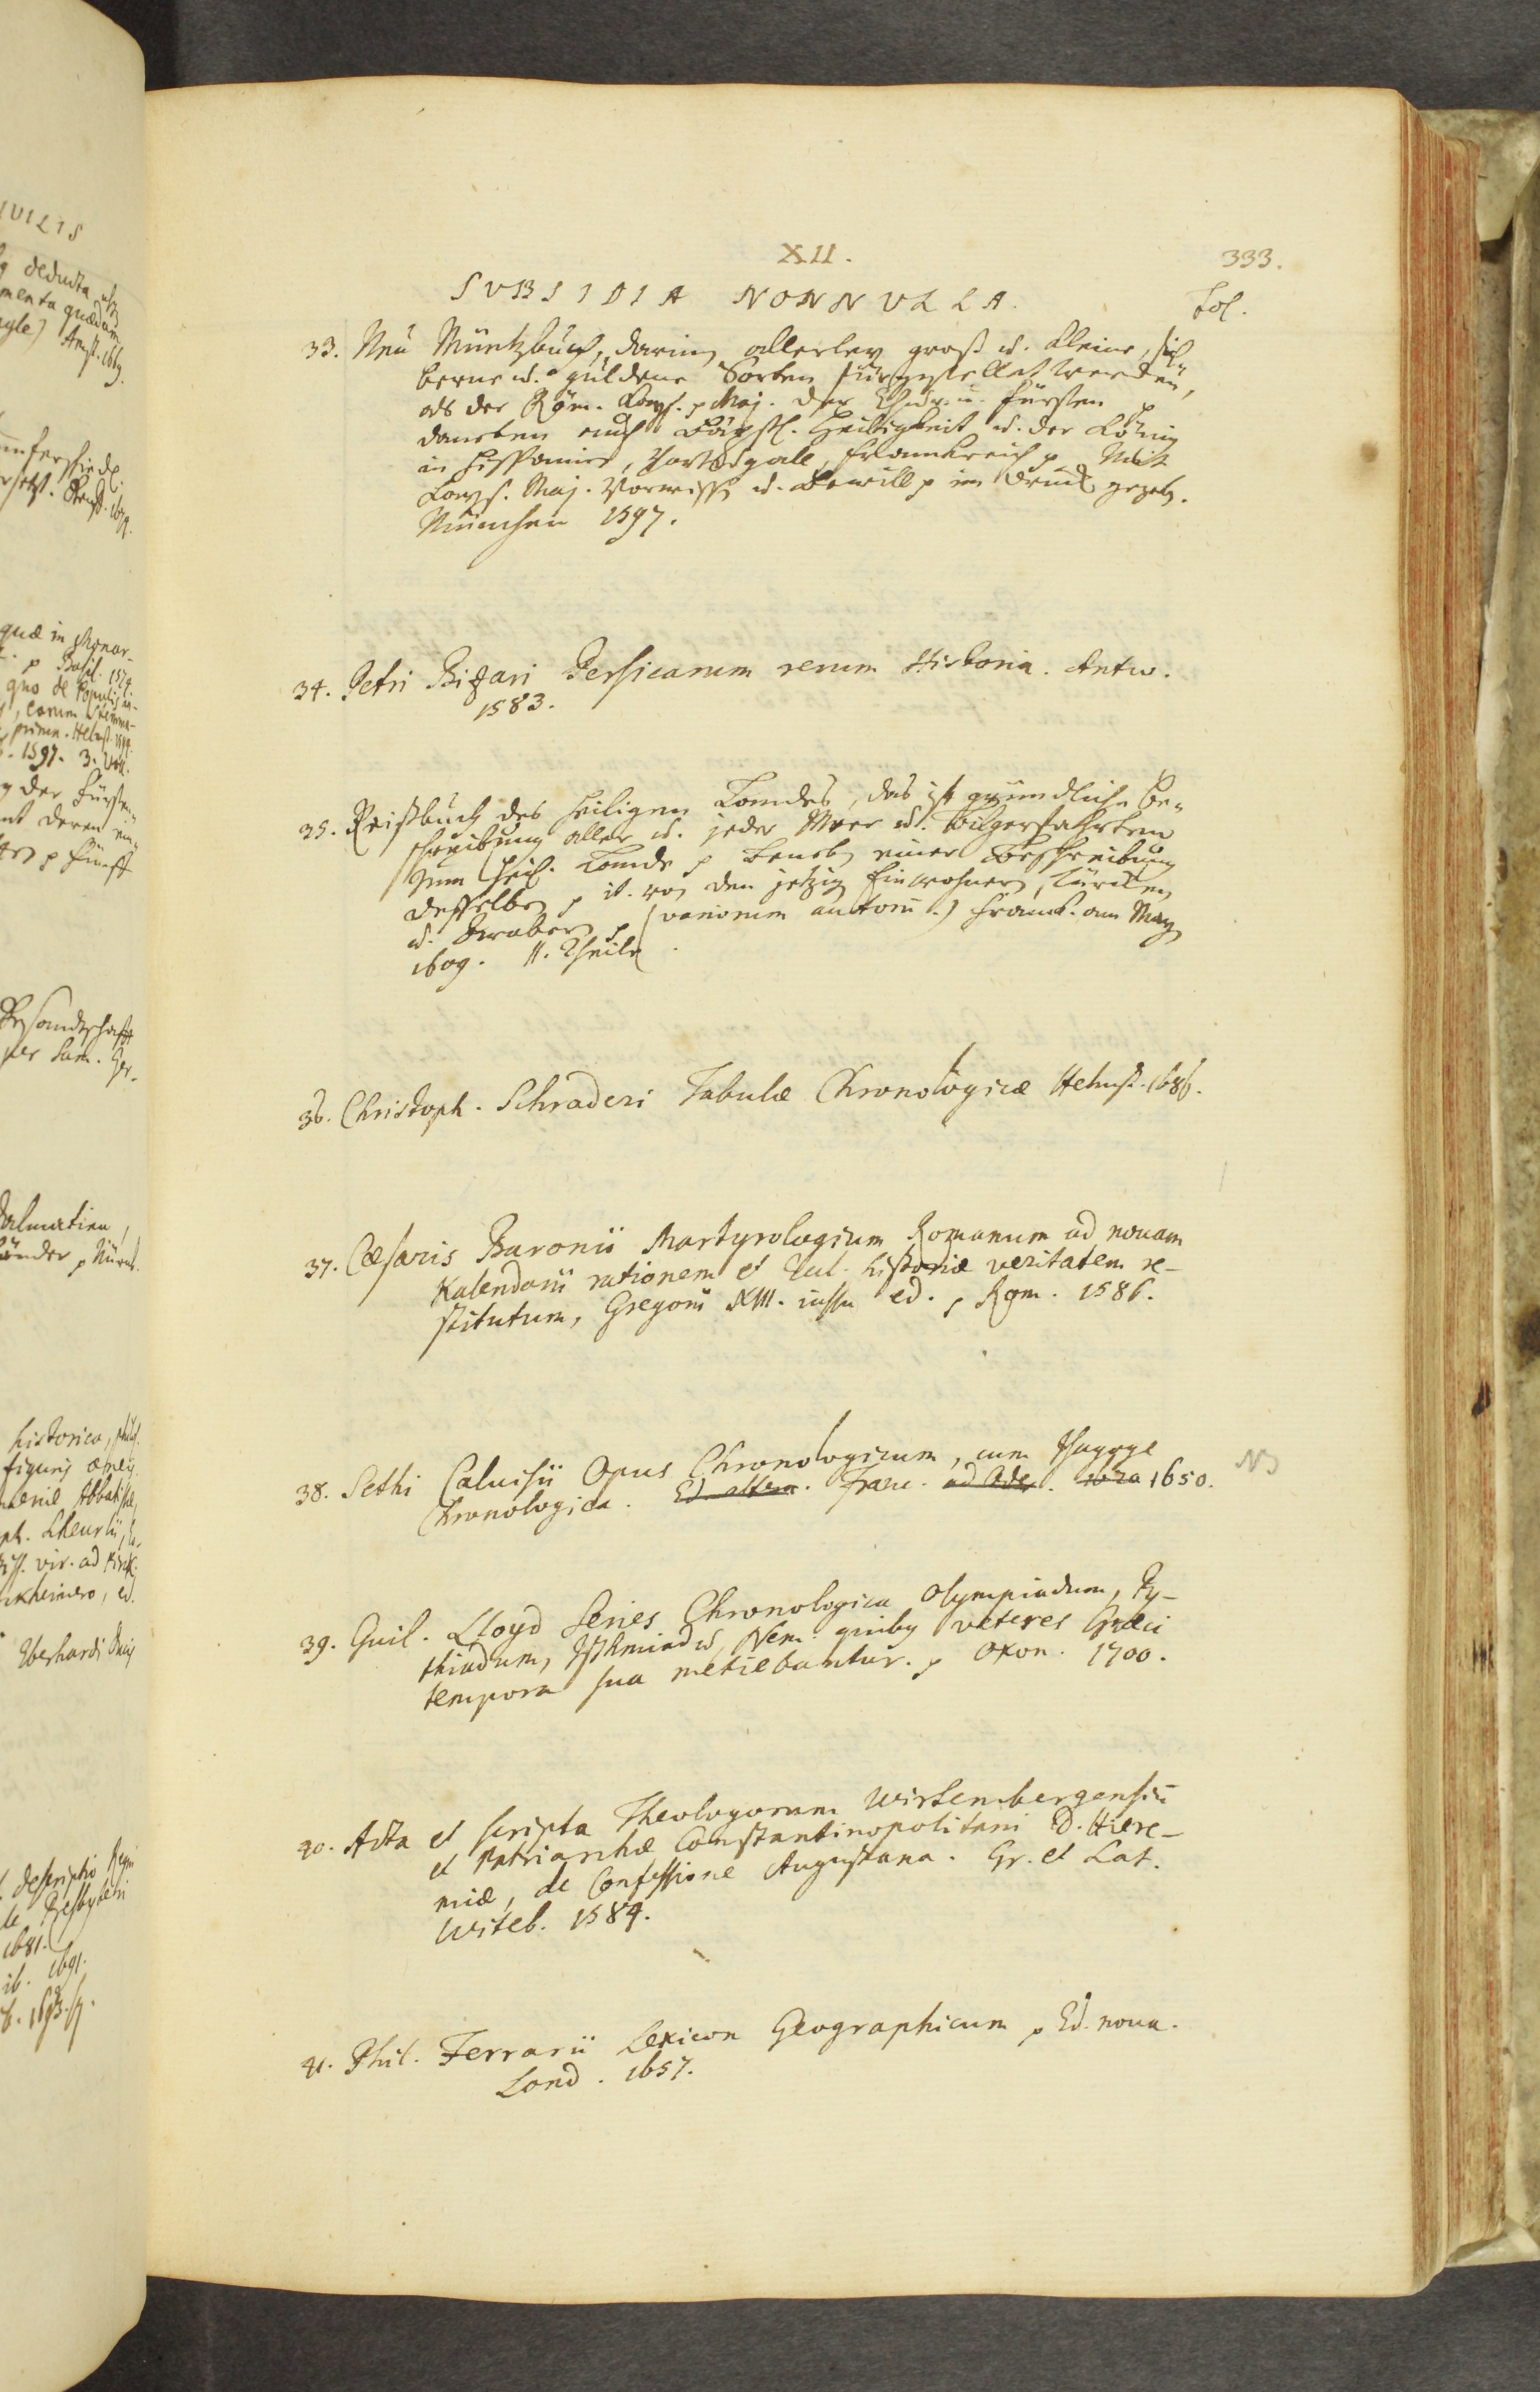 XII.
333.
SVBSIDIA NONNVLLA.
Fol.
33. Neu Müntzbuch, darinn allerley groß u. kleine, sil-
berne u. güldene Sorten fürgestellet werden,
als der Röm. Kays. p Maj. der Chur u. Fürsten p
daneben auch Päpstl. Heiligkeit u. der König
in Hispanien, Portugall, Franckreich p Mit
Kays. Maj. Vorwissen u. Bewill. p in Druck gegeb.
München 1597.
34. Petri Bizari Persicarum rerum Historia. Antw.
1583.
35. Reißbuch des heiligen Landes, das ist gründliche Be-
schreibung aller u. jeder Meer u. Bilgerfahrten
zum heil. Lande p benebn einer Beschreibung
desselben p it. von den jetzig Einwohnern, Türcken
u. Araber p (variorum autorū.) Franckf. am Mayn
1609. II. Theile.
36. Christoph. Schraderi Tabulæ Chronologicæ Helmst. 1686.
37. Cæsaris Baronii Martyrologium Romanum ad novam
Kalendarii rationem et Eccl. historiæ veritatem re-
stitutum, Gregorii XIII. iussu ed. p Rom. 1586.
38. Sethi Calvisii Opus Chronologicum, cum Isagoge
Chronologica. Ed. altera. Franc. ad Oder. 1620 1650.
NB
39. Guil. Lloyd Series Chronologica Olympiadum, Py-
thiadum, Isthmiadū, Nem. quibg veteres Græci
tempora sua metiebantur. p Oxon. 1700.
40. Acta et scripta Theologorum Wirtembergensiū
et Patriarchæ Constantinopolitani D. Hiere-
miæ, de Confessione Augustana. Gr. et Lat.
Witeb. 1584.
41. Phil. Ferrarii Lexicon Geographicum p Ed. nova.
Lond. 1657.